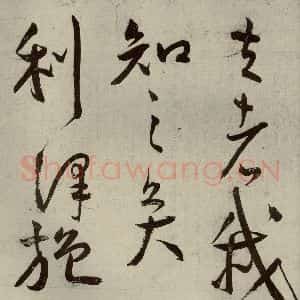 夫者我
知之矣
利澤施
Shufawang.CN